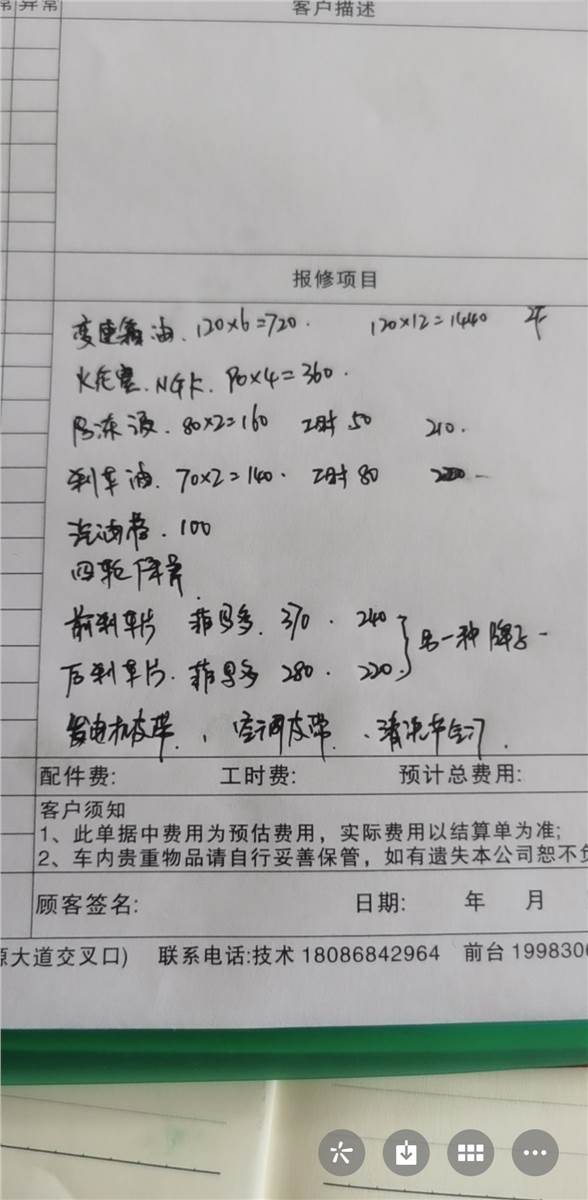 常 异常 客户描述
报修项目
变速箱油. 120×6=720. 120×12=1440
火花塞. NGK. 90×4=360.
防冻液. 80×2=160 工时50 210.
刹车油. 70×2=140. 工时80
汽油格. 100
四轮
前刹车片 菲罗多. 370. 240
另一种
后刹车片. 菲罗多 280. 220.
发电机皮带、空调皮带、清洗节气门.
配件费: 工时费: 预计总费用:
客户须知
1、此单据中费用为预估费用，实际费用以结算单为准;
2、车内贵重物品请自行妥善保管，如有遗失本公司恕不负
顾客签名: 日期: 年 月
源大道交叉口) 联系电话:技术 18086842964 前台 1998300